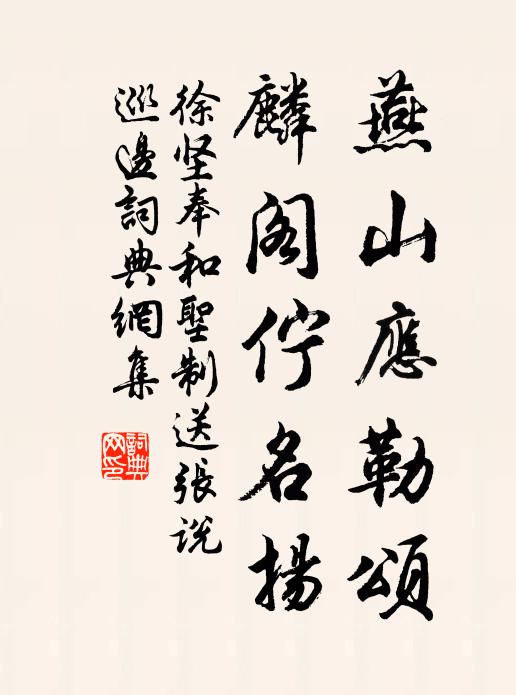 燕山應勒頌
麟阁佇名揚
徐坚奉和聖制送張说
巡邊詞典網集
詞典网印